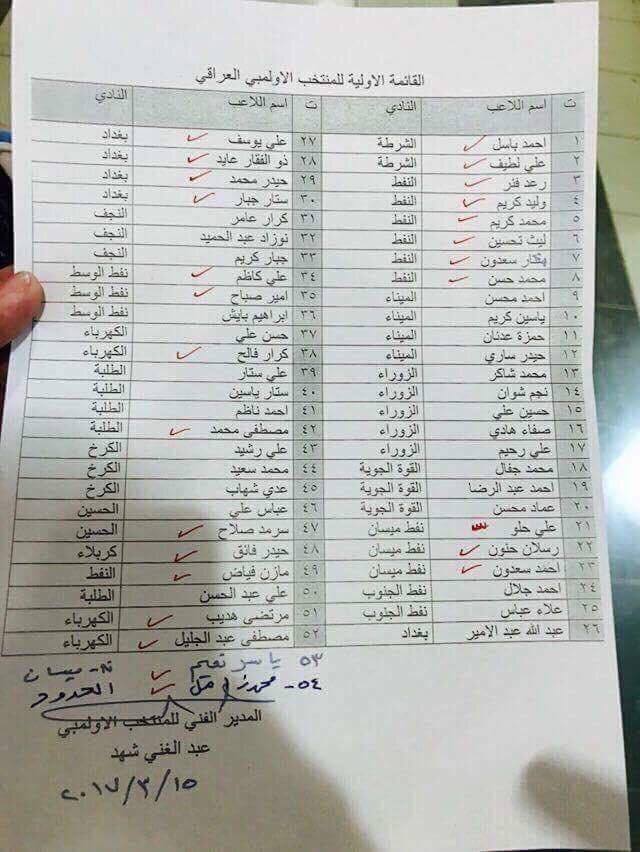 القائمة الاولية للمنتخب الاولمبي العراقي
ت اسم اللاعب النادي ت اسم اللاعب النادي
١ احمد باسل الشرطة ٢٧ علي يوسف بغداد
٢ علي لطيف الشرطة ٢٨ ذو الفقار عايد بغداد
٣ رعد فنر النفط ٢٩ حيدر محمد بغداد
٤ وليد كريم النفط ٣٠ ستار جبار بغداد
٥ محمد كريم النفط ٣١ كرار عامر النجف
٦ ليث تحسين النفط ٣٢ نوزاد عبد الحميد النجف
٧ سعدون النفط ٣٣ جبار كريم النجف
٨ محمد حسن النفط ٣٤ علي كاظم نفط الوسط
٩ احمد محسن الميناء ٣٥ امير صباح نفط الوسط
١٠ ياسين كريم الميناء ٣٦ ابراهيم بايش نفط الوسط
١١ حمزة عدنان الميناء ٣٧ حسن علي الكهرباء
١٢ حيدر ساري الميناء ٣٨ كرار فالح الكهرباء
١٣ محمد شاكر الزوراء ٣٩ علي ستار الطلبة
١٤ نجم شوان الزوراء ٤٠ ستار ياسين الطلبة
١٥ حسين علي الزوراء ٤١ احمد ناظم الطلبة
١٦ صفاء هادي الزوراء ٤٢ مصطفى محمد الطلبة
١٧ علي رحيم الزوراء ٤٣ علي رشيد الكرخ
١٨ محمد جفال القوة الجوية ٤٤ محمد سعيد الكرخ
١٩ احمد عبد الرضا القوة الجوية ٤٥ عدي شهاب الكرخ
٢٠ عماد محسن القوة الجوية ٤٦ عباس علي الحسين
٢١ علي حلو نفط ميسان ٤٧ سرمد صلاح الحسين
٢٢ رسلان حنون نفط ميسان ٤٨ حيدر فائق كربلاء
٢٣ احمد سعدون نفط ميسان ٤٩ مازن فياض النفط
٢٤ احمد جلال نفط الجنوب ٥٠ علي عبد الحسن الطلبة
٢٥ علاء عباس نفط الجنوب ٥١ مرتضى هديب الكهرباء
٢٦ عبد الله عبد الامير بغداد ٥٢ مصطفى عبد الجليل الكهرباء
٥٣ ياسر نعيم ن- ميسان
٥٤- محمد الحدود
المدير الفني للمنتخب الاولمبي
عبد الغني شهد
٢٠١٧/٣/١٥